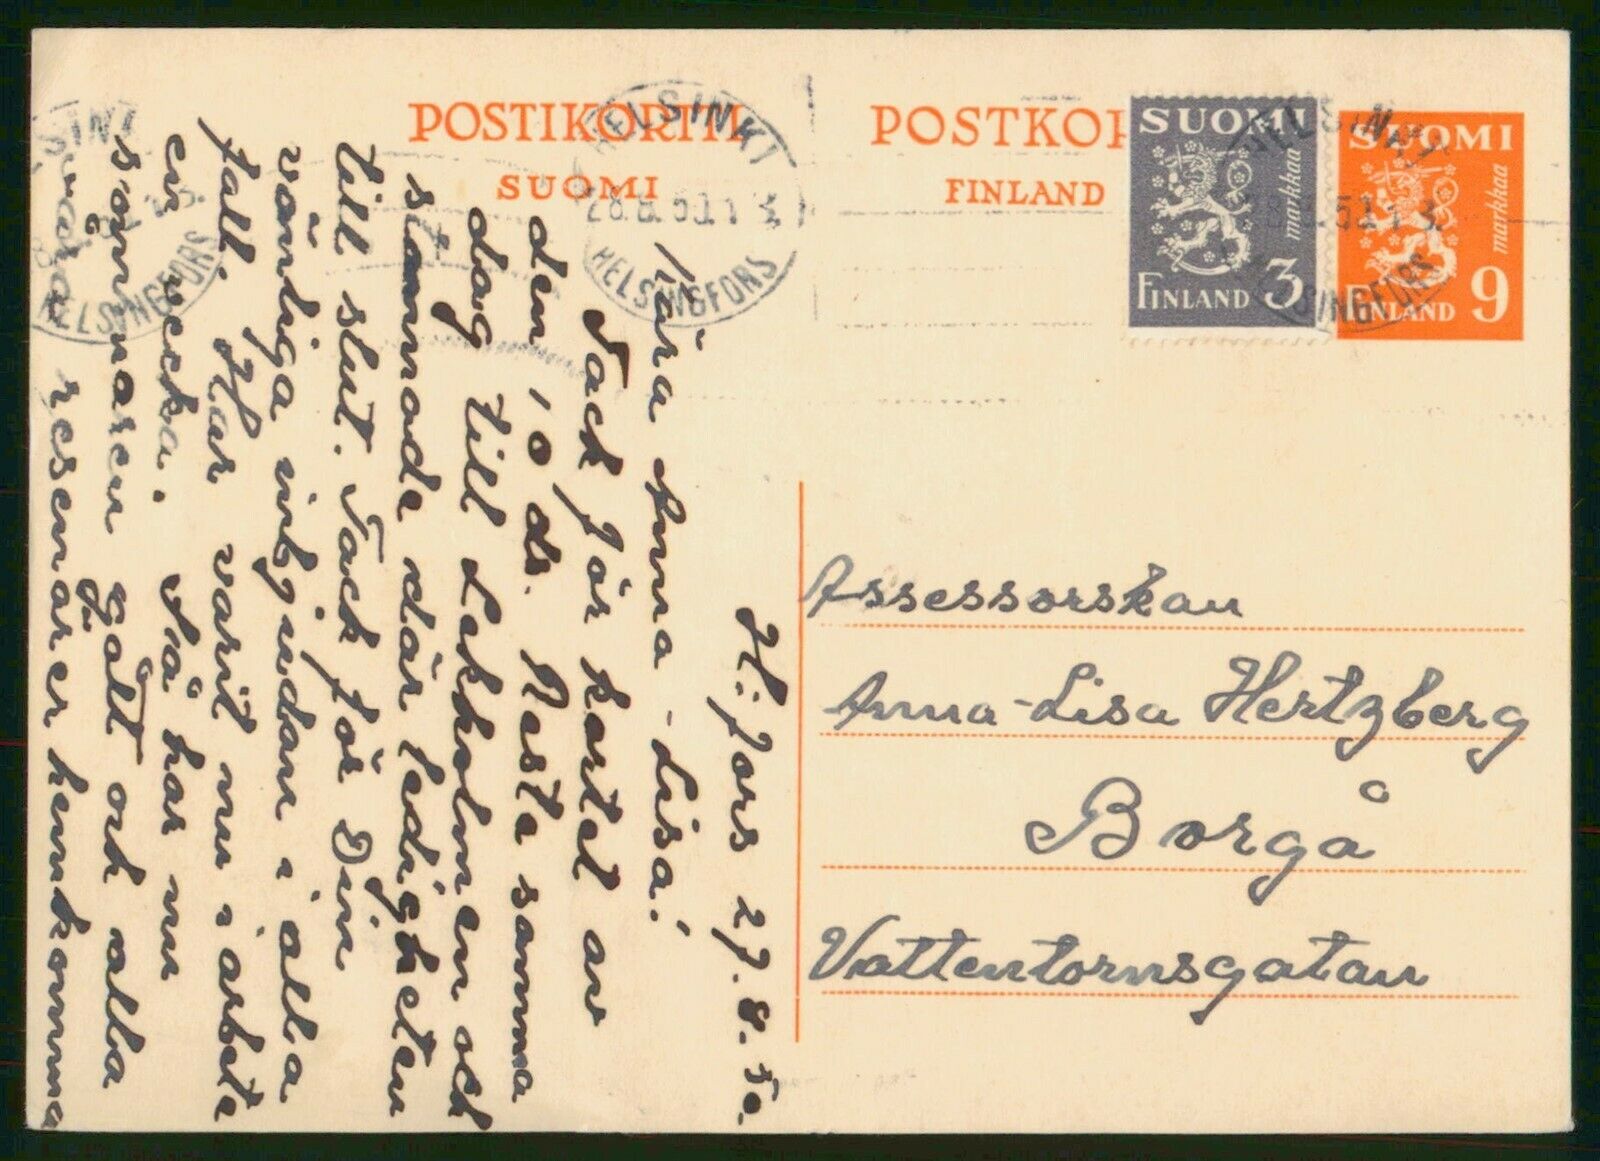 POSTIKORTTI
SUOMI
POSTKOR
FINLAND
SUOMI
markkaa
FINLAND 3
SUOMI
markkaa
FINLAND 9
HELSINKI
28.8.50.
HELSINGFORS
HELSINKI
HELSINGFORS
H:fors 27.8.50.
Kära Anna-Lisa!
Tack för kortet av
den 10 ds. Resta samma
dag till Lakholmen och
stannade där ledigheten
till slut. Tack för Din
vänliga inbjudan i alla
fall. Har varit nu i arbete
en vecka. Så har nu
sommaren gått och alla
våra resenärer hemkomma
Assessorskan
Anna-Lisa Hertzberg
Borgå
Vattentornsgatan